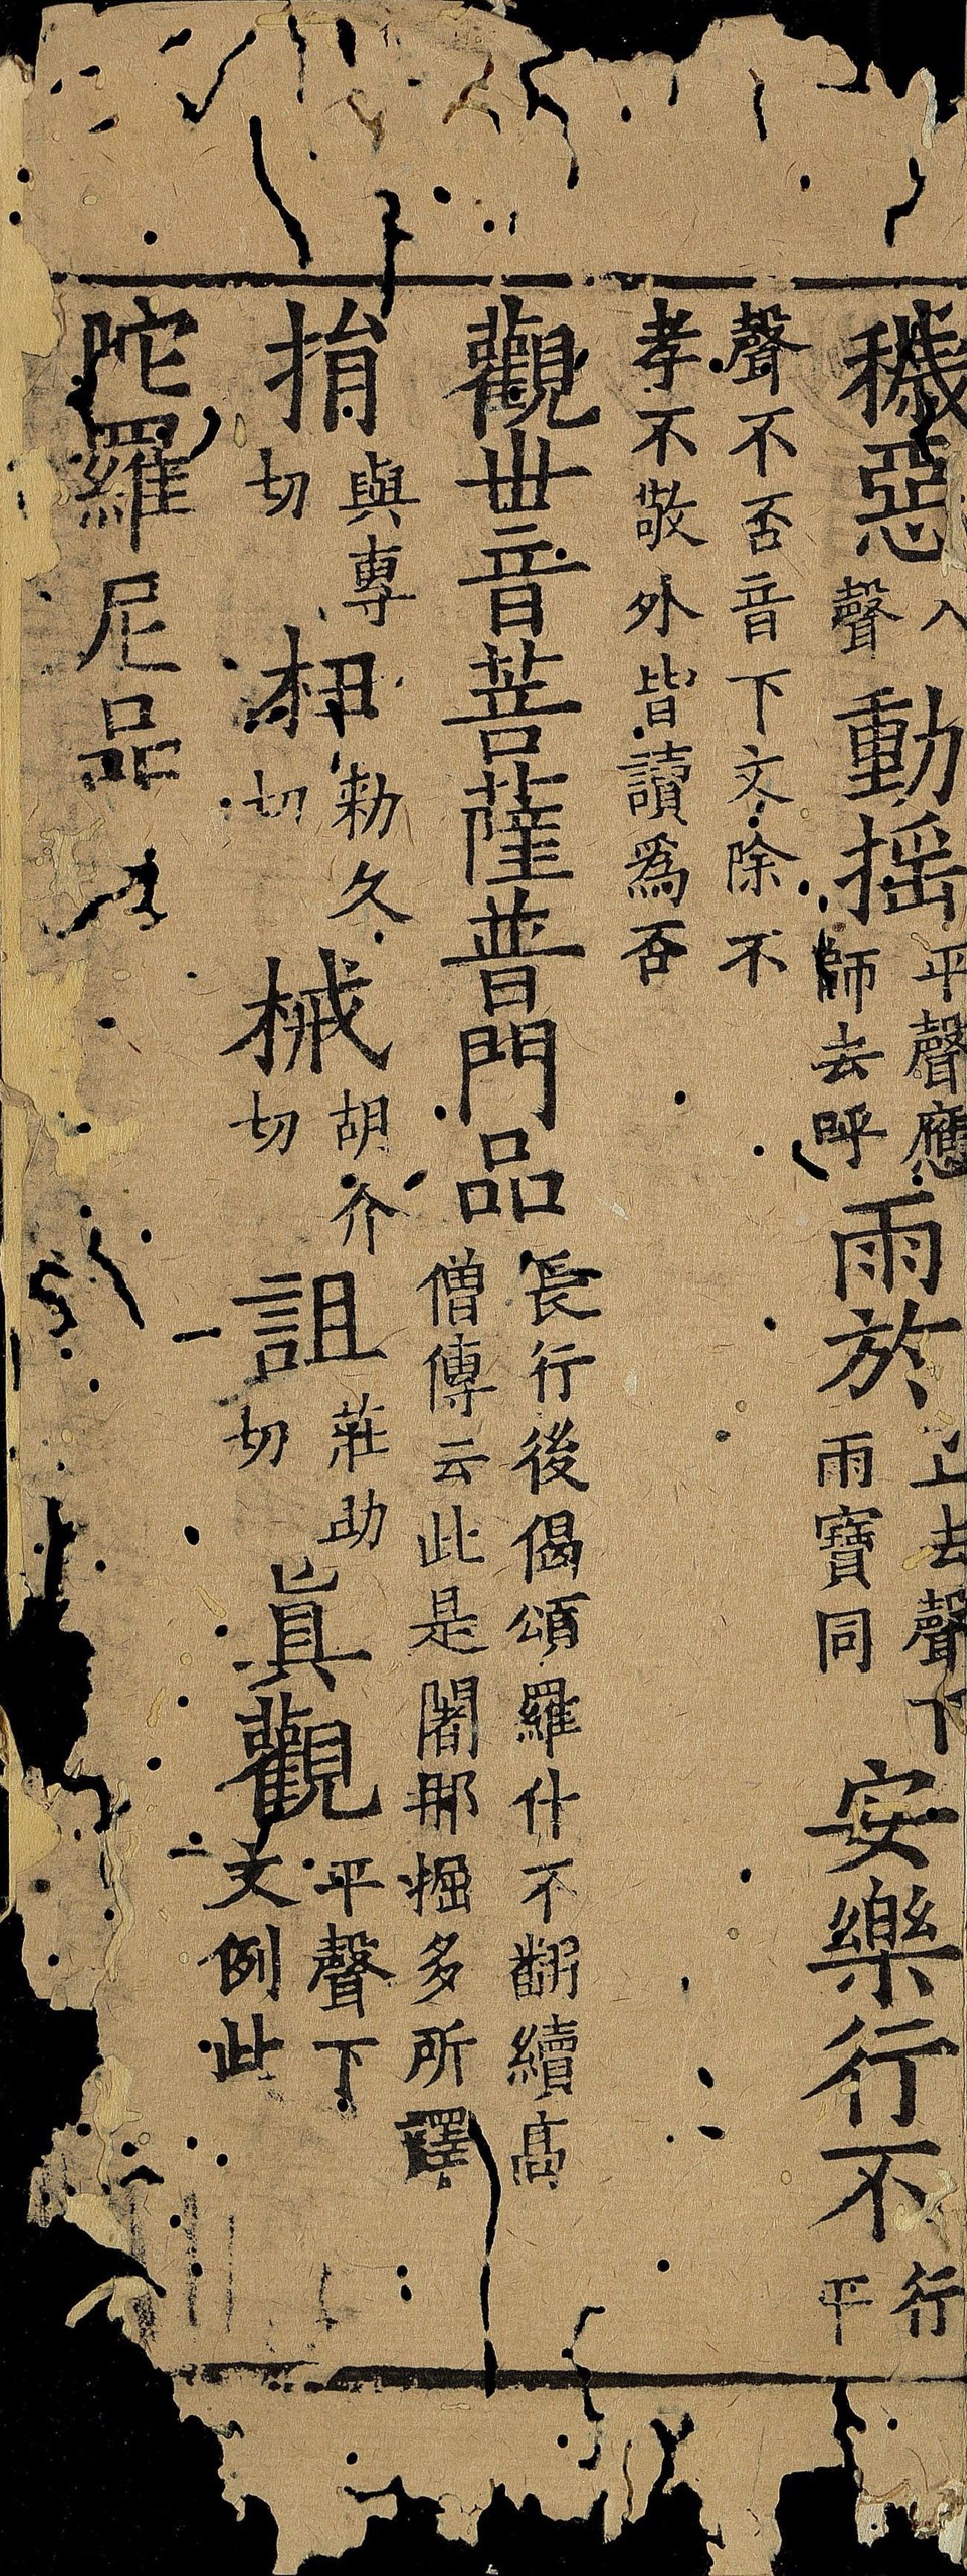 穢惡入聲動揺平聲應師去呼雨於上去聲下雨寶同安樂行不行平
聲不否音下文除不孝不敬外皆讀爲否
觀世音菩薩普門品長行後偈頌羅什不翻續高僧傳云此是闍那掘多所譯
捐與專切杻勑久切械胡介切詛莊助切眞觀平聲下文例此
陀羅尼品